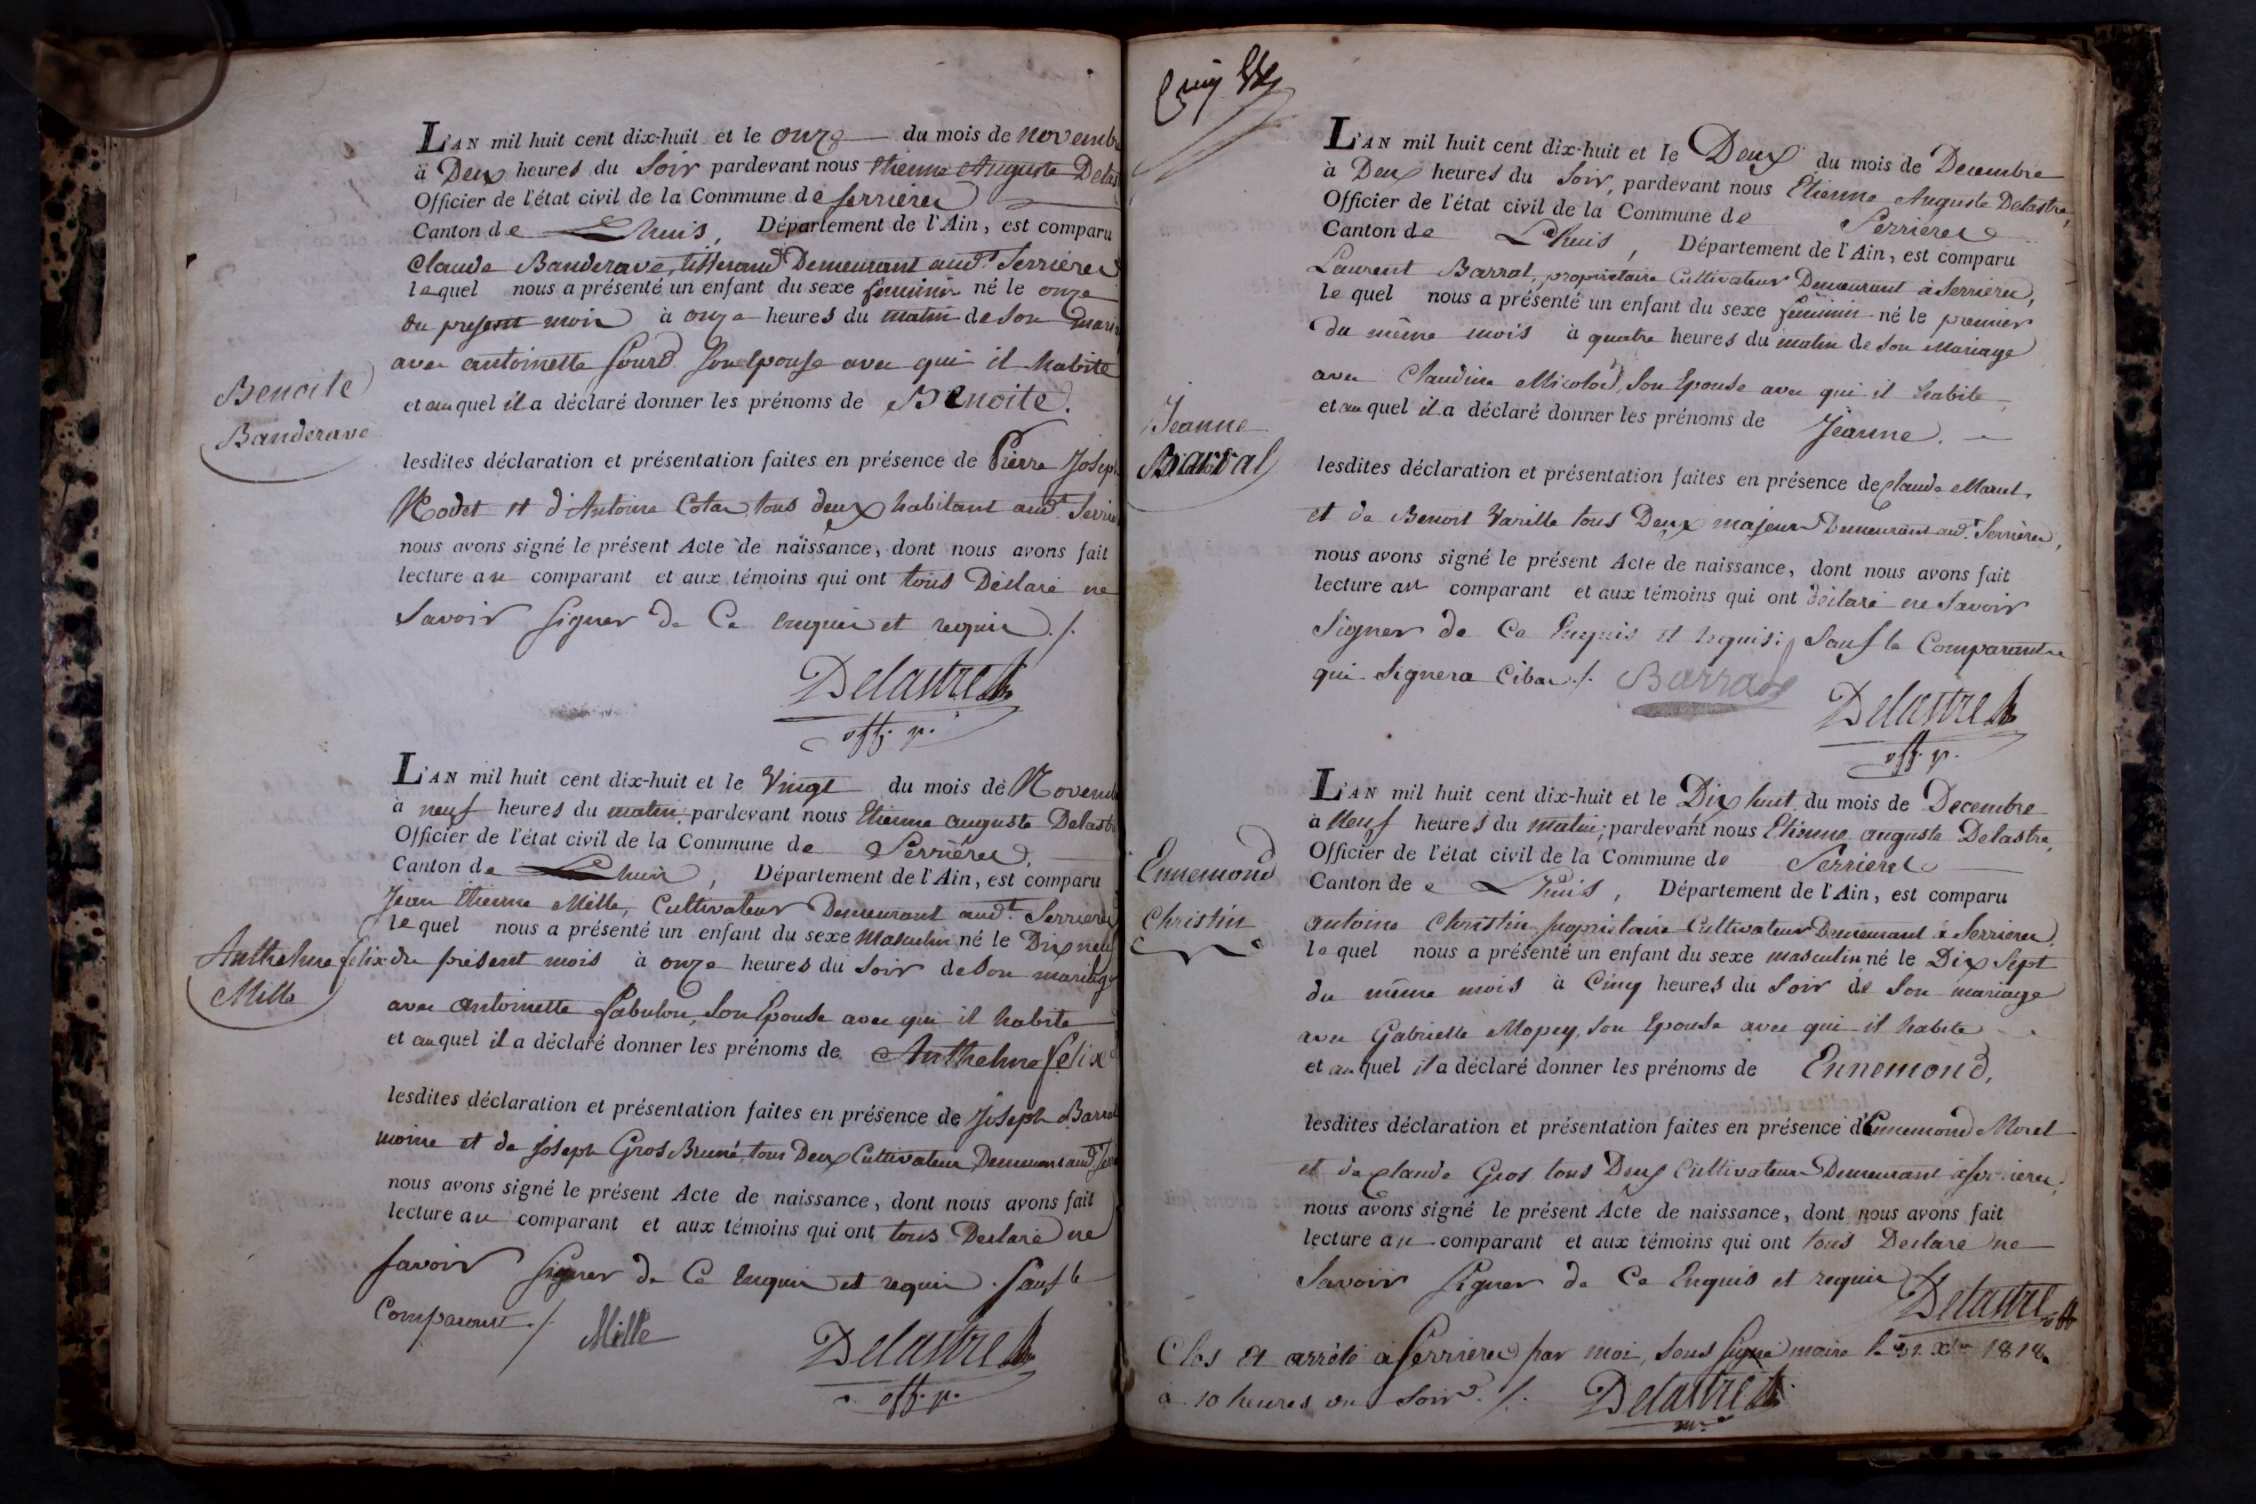 L'AN mil huit cent dix-huit et le onze du mois de novemb
à Deux heures du Soir pardevant nous Etienne Auguste Delas
Officier de l'état civil de la Commune de Serrieres
Canton de Lhuis, Département de l'Ain, est comparu
Claude Banderave, tisserand Demeurant aud.t Serrieres
lequel nous a présenté un enfant du sexe feminin né le onze
du present mois à onze heures du matin de son maria
avec antoinette Sourd son Epouse avec qui il habite
et auquel il a déclaré donner les prénoms de Benoite.
Benoite
Banderave
lesdites déclaration et présentation faites en présence de Pierre Joseph
Rodet et d'Antoine Cotar tous deux habitant aud.t Serrie
nous avons signé le présent Acte de naissance, dont nous avons fait
lecture au comparant et aux témoins qui ont tous Déclaré ne
Savoir signer de Ce Enquis et requis ./.
Delastre
off. p.
L'AN mil huit cent dix-huit et le Vingt du mois de Novemb
à neuf heures du matin, pardevant nous Etienne auguste Delast
Officier de l'état civil de la Commune de Serrieres,
Canton de Lhuis, Département de l'Ain, est comparu
Jean Etienne Mille, Cultivateur Demeurant aud.t Serrieres
lequel nous a présenté un enfant du sexe Masculin né le Dix neuf
du présent mois à onze heures du Soir de son mariage
Anthelme felix
Mille
avec Antoinette Pabulon, Son Epouse avec qui il habite
et auquel il a déclaré donner les prénoms de Anthelme felix
lesdites déclaration et présentation faites en présence de Joseph Barral
moine et de Joseph Gros Bruné, tous Deux Cultivateurs Demeurant aud.t Ser
nous avons signé le présent Acte de naissance, dont nous avons fait
lecture au comparant et aux témoins qui ont tous Declaré ne
Savoir Signer de Ce Enquis et requis. Sauf le
Comparant ./. Mille
Delastre
off. p.
L'AN mil huit cent dix-huit et le Deux du mois de Decembre
à Deux heures du Soir, pardevant nous Etienne Auguste Delastre,
Officier de l'état civil de la Commune de Serrieres
Canton de Lhuis, Département de l'Ain, est comparu
Laurent Barral, propriétaire Cultivateur Demeurant à Serrieres,
lequel nous a présenté un enfant du sexe féminin né le premier
du même mois à quatre heures du matin de son Mariage
avec Claudine Micolod, Son Epouse avec qui il habite
et auquel il a déclaré donner les prénoms de Jeanne.
Jeanne
Barral
lesdites déclaration et présentation faites en présence de Claude Maret,
et de Benoit Varille tous Deux majeurs Demeurant aud.t Serrières,
nous avons signé le présent Acte de naissance, dont nous avons fait
lecture au comparant et aux témoins qui ont déclaré ne Savoir
Signer de Ce Enquis et requis; Sauf le Comparant
qui Signera Cibas ./. Barral
Delastre
off. p.
L'AN mil huit cent dix-huit et le Dix huit du mois de Decembre
à Neuf heures du matin; pardevant nous Etienne auguste Delastre,
Officier de l'état civil de la Commune de Serrieres
Canton de Lhuis, Département de l'Ain, est comparu
Ennemond
Christin
antoine Christin propriétaire Cultivateur Demeurant à Serrieres,
lequel nous a présenté un enfant du sexe masculin né le Dix Sept
du même mois à Cinq heures du Soir de Son mariage
avec Gabrielle Mopey, Son Epouse avec qui il habite
et auquel il a déclaré donner les prénoms de Ennemond,
lesdites déclaration et présentation faites en présence d'Ennemond Morel
et de Claude Gros tous Deux Cultivateurs Demeurant à Serrieres,
nous avons signé le présent Acte de naissance, dont nous avons fait
lecture au comparant et aux témoins qui ont tous Declaré ne
Savoir Signer de Ce Enquis et requis
Delastre off
Clos et arrêté à Serrieres par moi, Sous Signé maire le 31 Xbre 1818
à 10 heures du Soir ./. Delastre
m.re